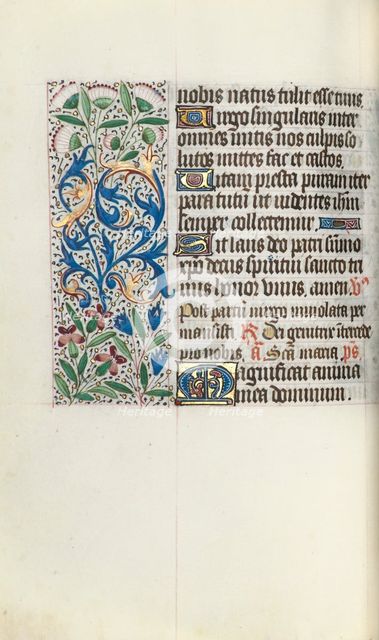 nobis natus tulit esse tuus.
Virgo singularis inter
omnes mitis nos culpis so
lutos mittes fac et castos.
Vitam presta puram iter
para tutum ut videntes ihm
semper colletemur.
Sit laus deo patri sumo
xpo decus spiritui sancto tri
nus honor unus. amen. V
Post partum virgo inviolata per
mansisti. R Dei genitrix intercede
pro nobis. a Sca maria. ps
Magnificat anima
mea dominum.
heritage
Heritage
Heritage